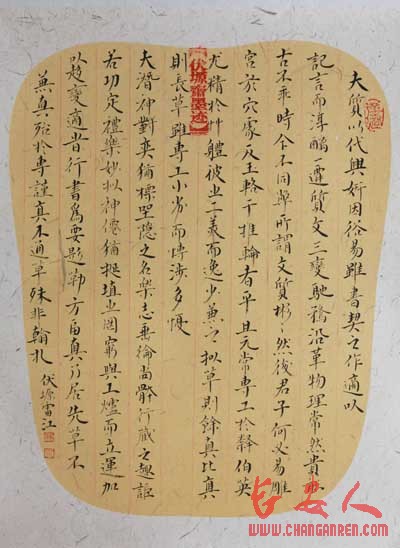 夫質以代興妍因俗易雖書契之作適以
記言而淳醨一遷質文三變馳鶩沿革物理常然貴能
古不乖時今不同弊所謂文質彬々然後君子何必易雕
宮於穴處反玉輅于椎輪者乎且元常專工於隸伯英
尤精於艸體彼此二美而逸少兼之擬草則餘真比真
則長草雖專工小劣而博涉多優
夫潛神對奕猶標坐隱之名樂志垂綸尚體行藏之趣詎
若功定禮樂妙擬神僊猶挻埴之罔窮與工爐而並運加
以趨變適時行書爲要題勒方畐真乃居先草不
兼真殆於專謹真不通草殊非翰札
伏塬雷江
【伏塬齋墨迹】
长安人
www.changanren.com